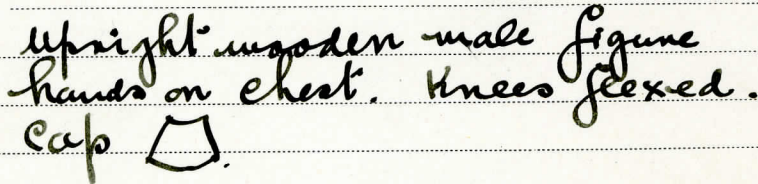 Upright wooden male figure
hands on chest. Knees flexed.
Cap